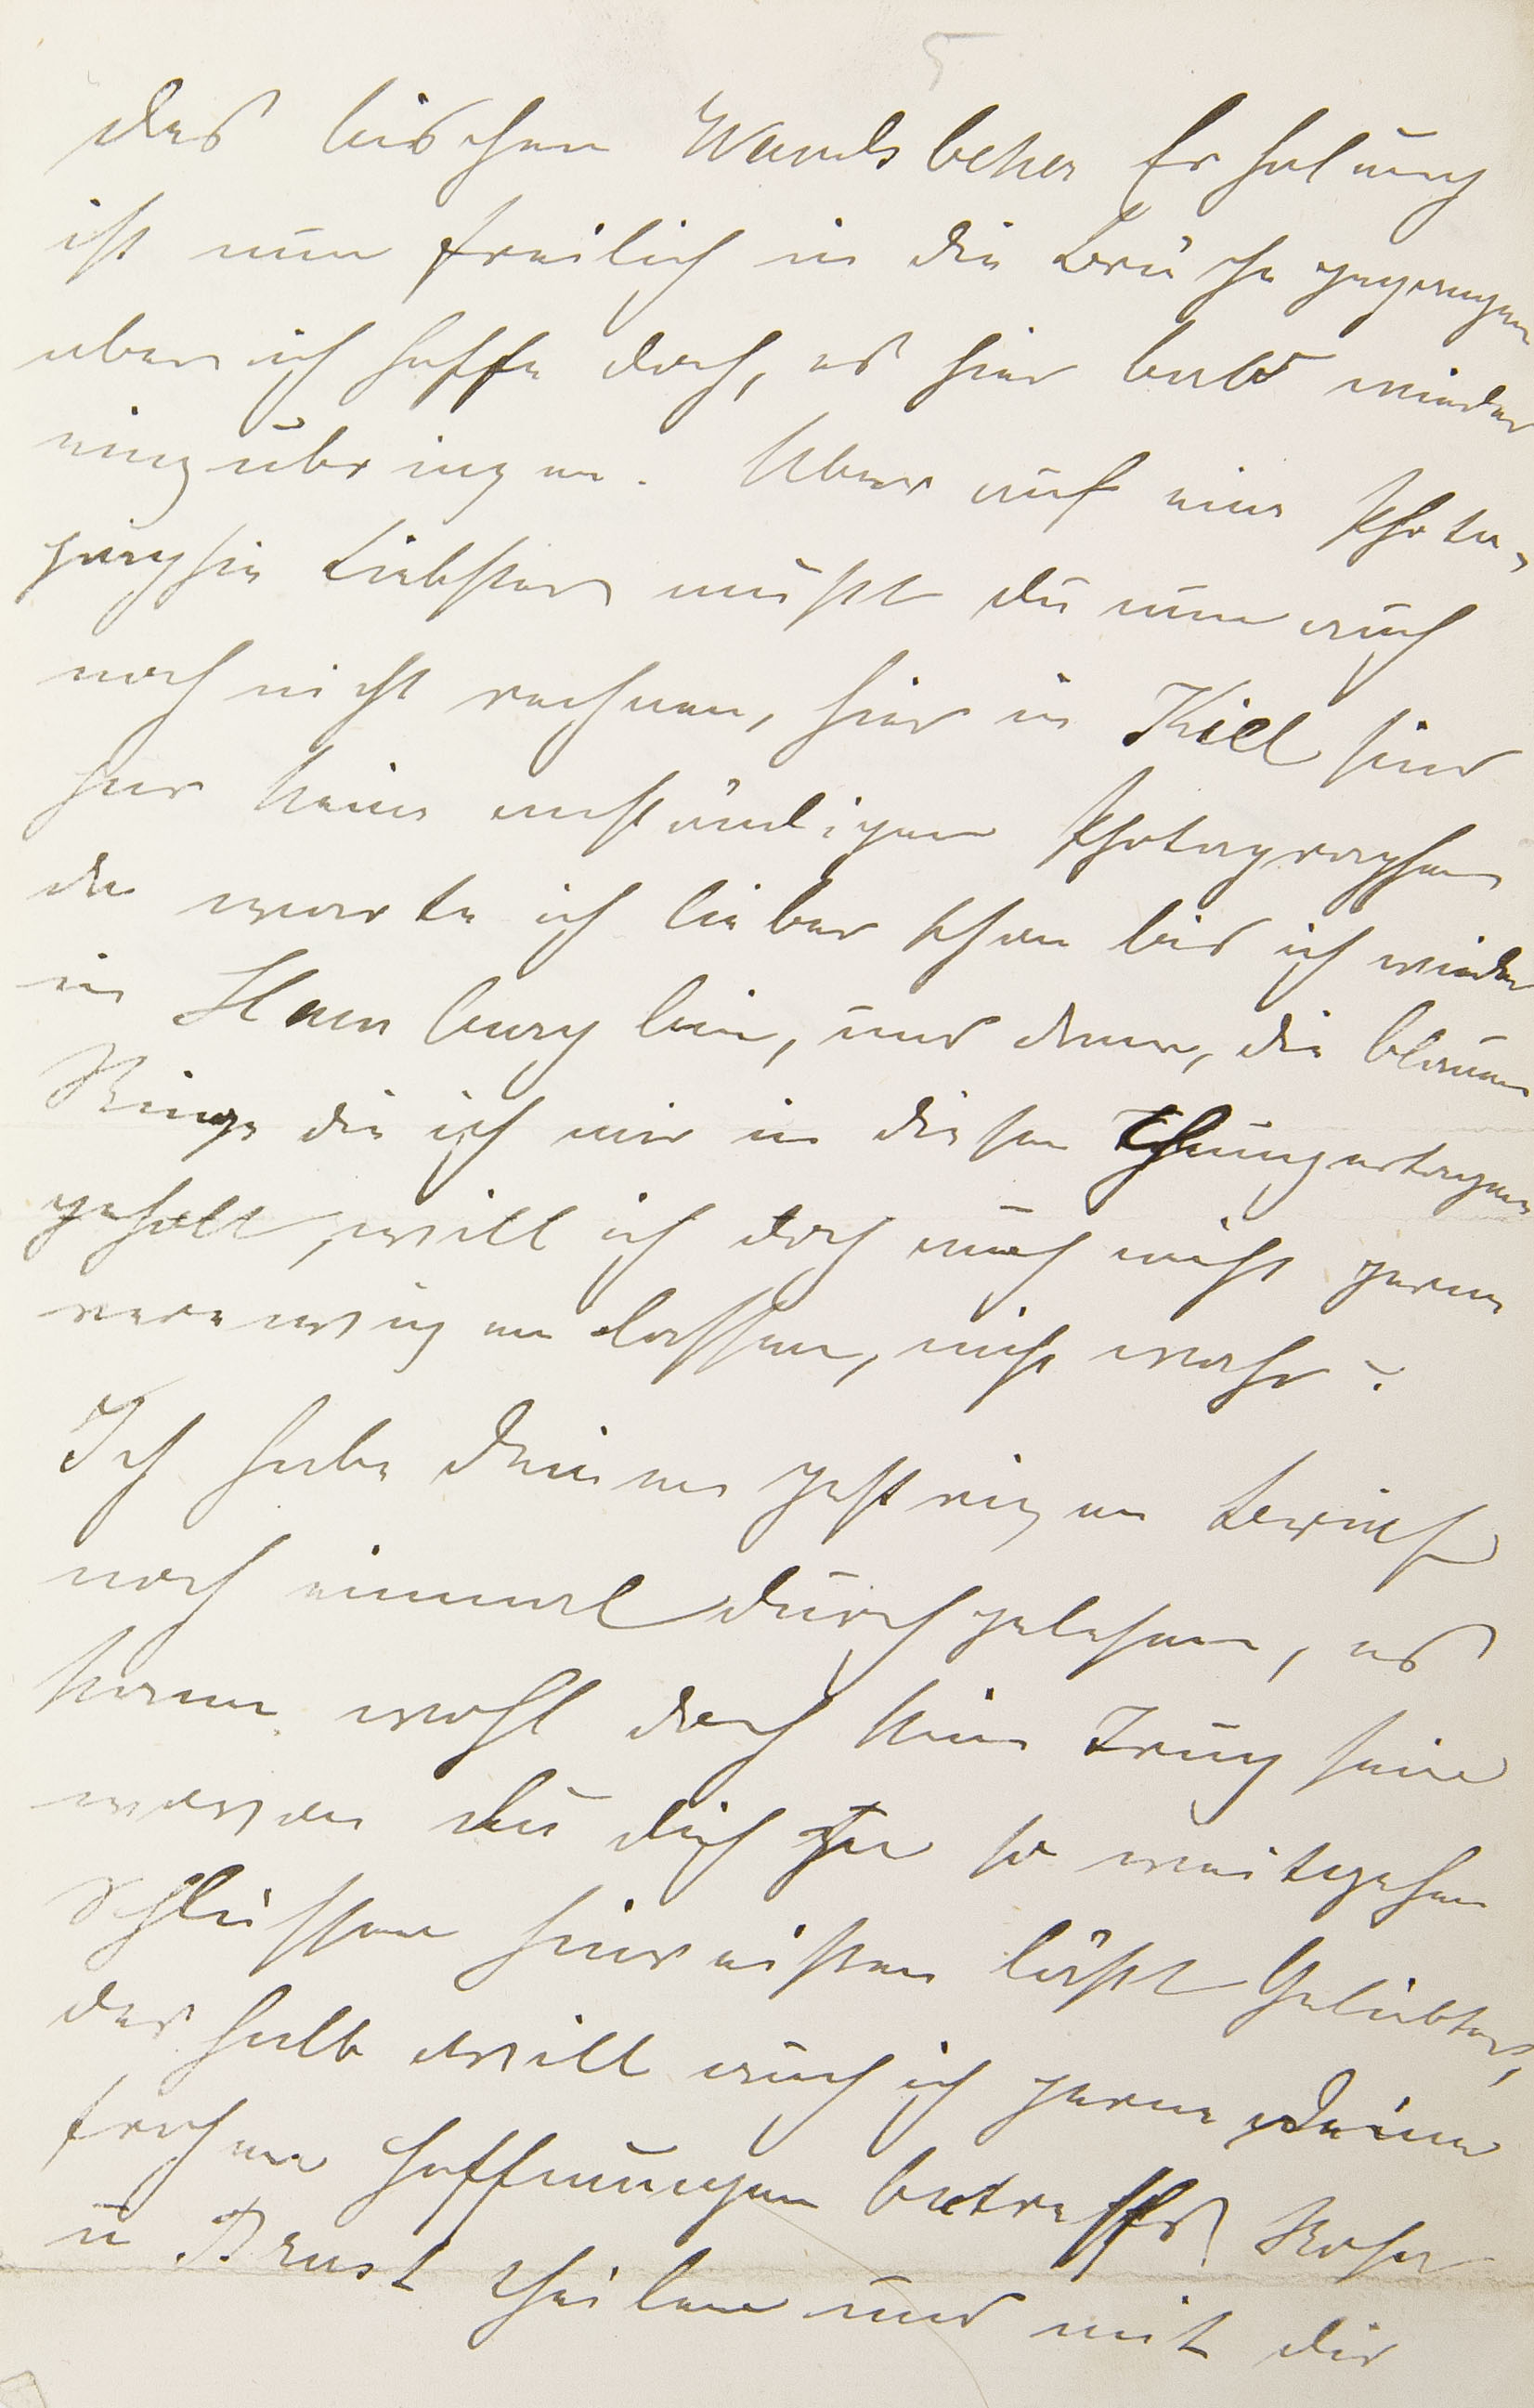 5
das bischen Wandsbeker Erholung
ist nun freilich in die Brüche gegangen
aber ich hoffe doch, es hier bald wieder
einzubringen. Aber auf eine Photo-
graphie Liebster mußt du nun auch
noch nicht rechnen, hier in Kiel sind
gar keine anständigen Photographen
da warte ich lieber schon bis ich wieder
in Hamburg bin, und dann, die blauen
Ringe die ich mir in diesen Hungertagen
geholt, will ich doch auch nicht gerne
verewigen lassen, nicht wahr?
Ich habe Deinen gestrigen Brief
noch einmal durchgelesen, es
kann wohl doch kein Trug sein
wovon du dich zu so weitgehen
Schlüssen hinreißen läßt Geliebter,
deshalb will auch ich gerne Deine
frohen Hoffnungen betreffs Rosa
u Brust theilen und mit dir